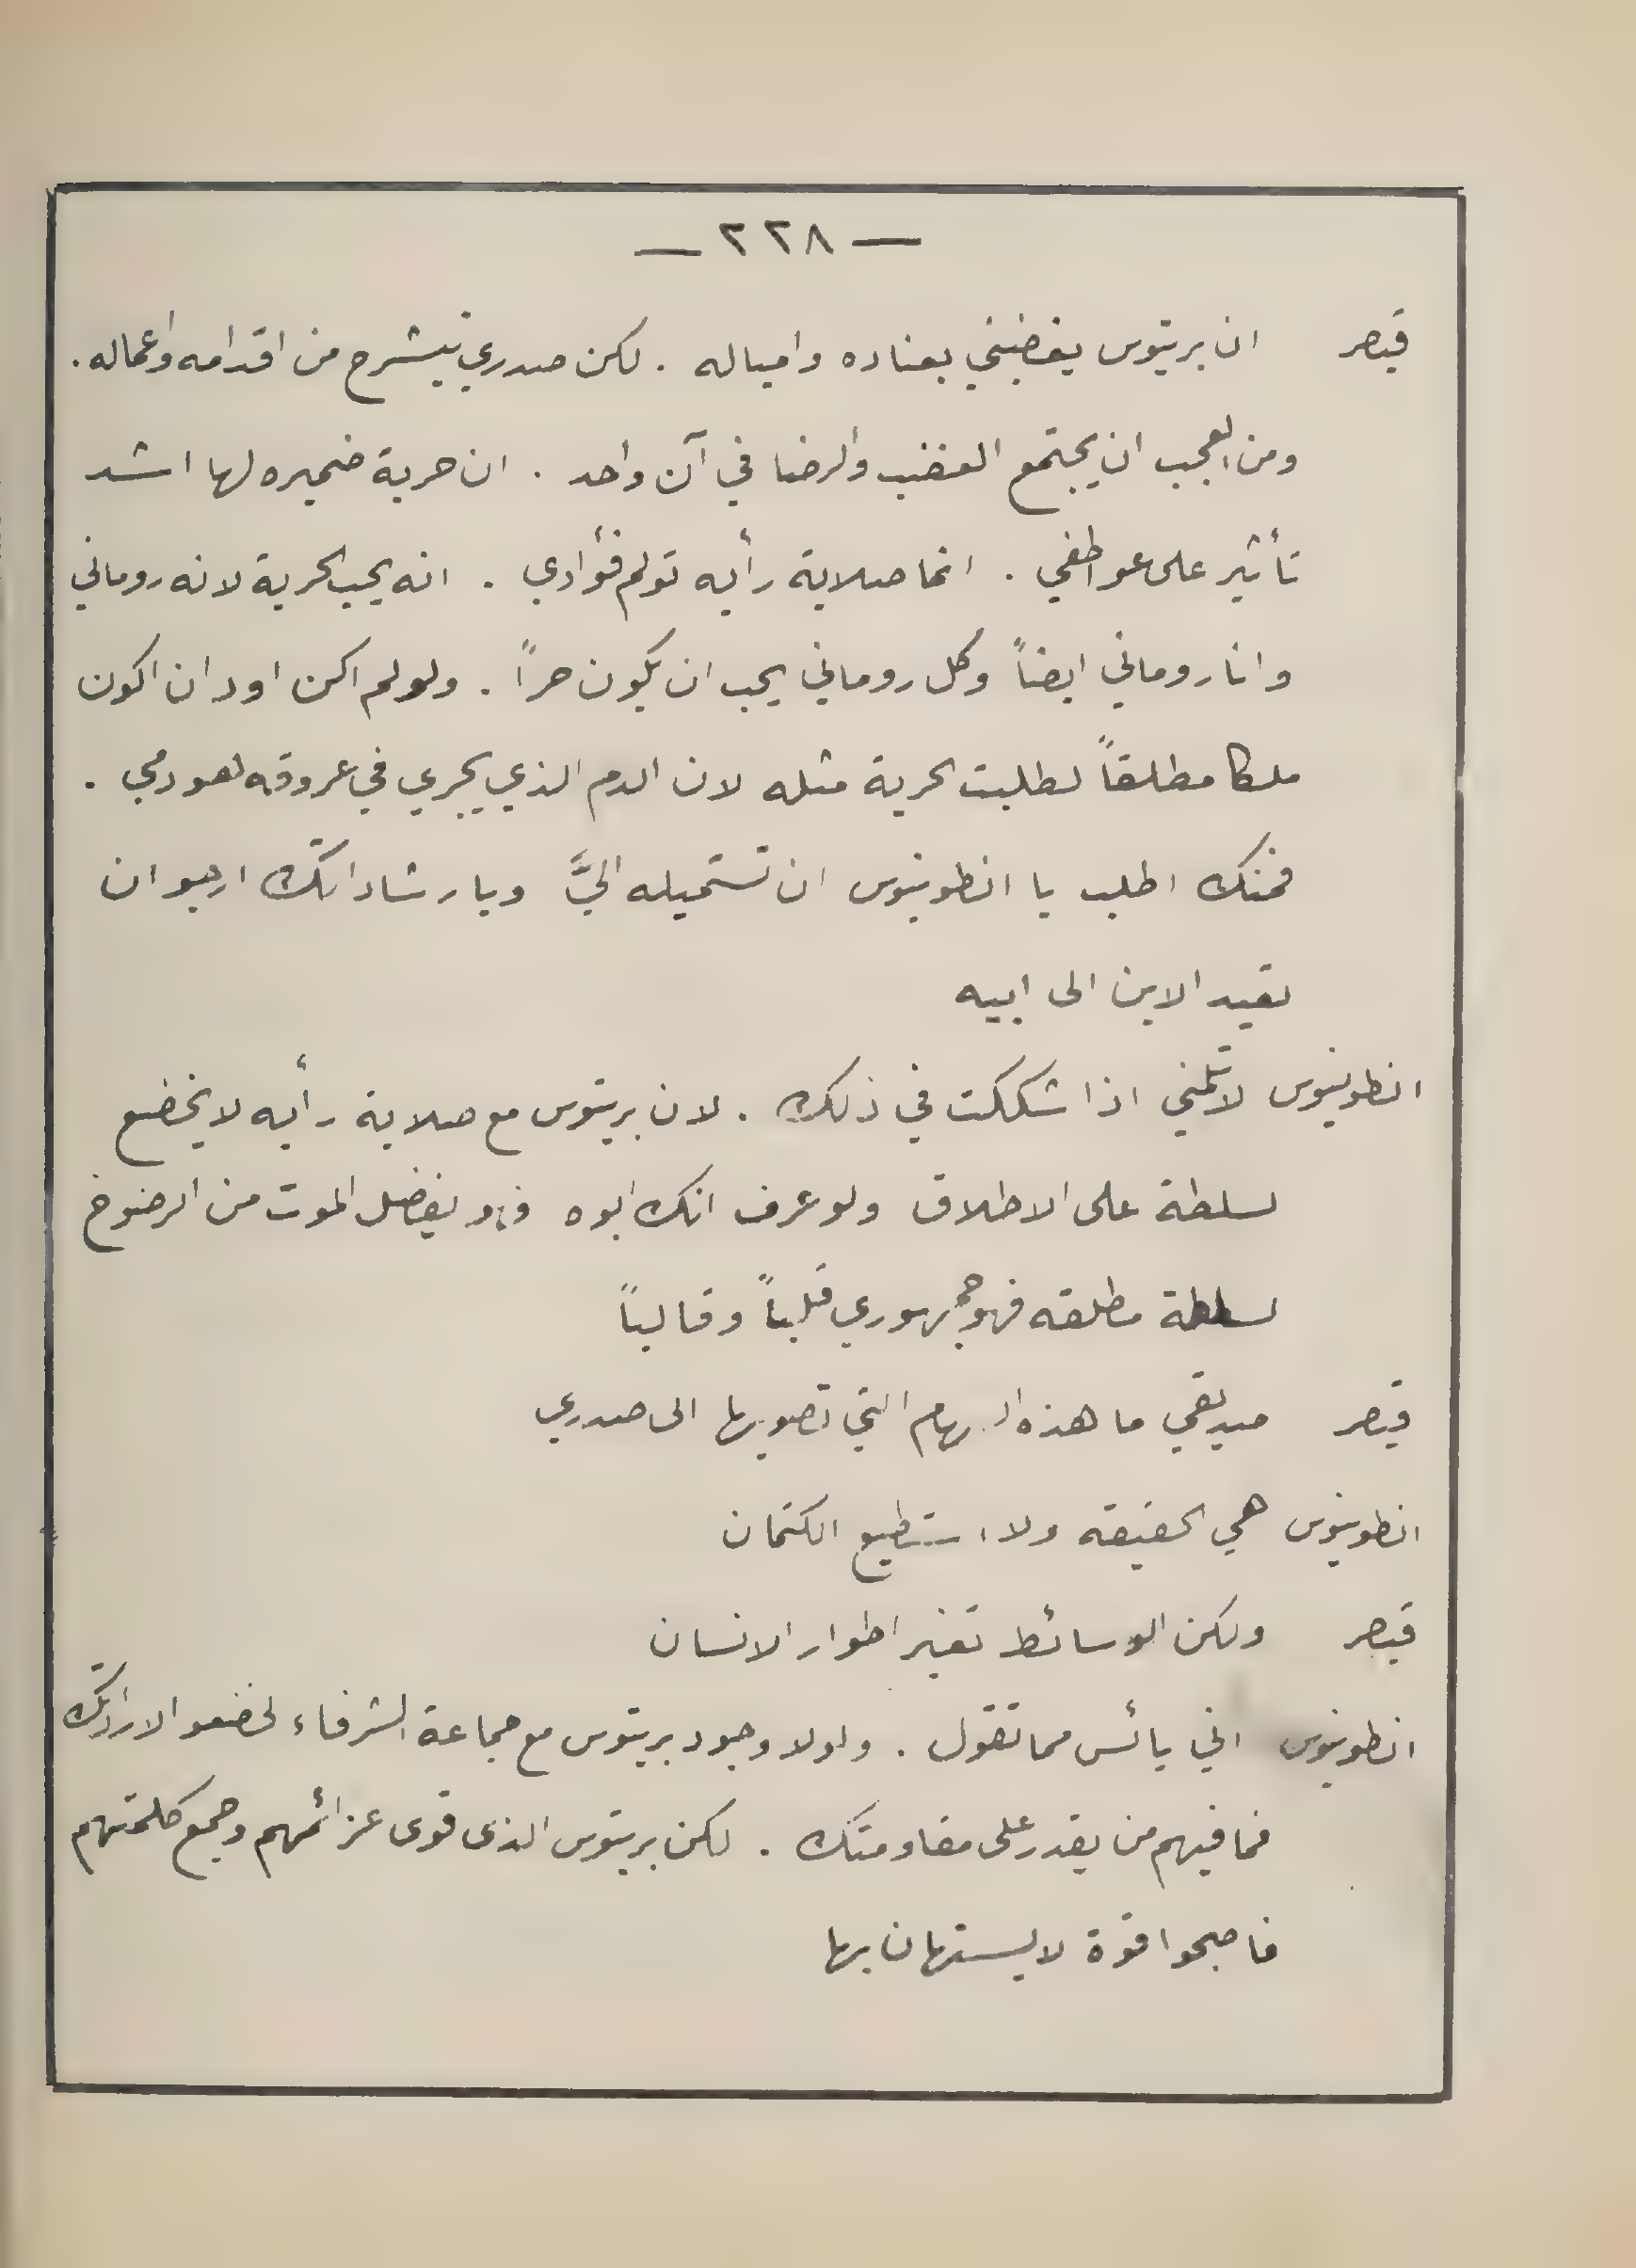 — ٢٢٨ —
قيصر ان بريتوس يغضبني بعناده وامياله . لكن صدري ينشرح من اقدامه وأعماله .
ومن العجب ان يجتمع الغضب والرضا في آن واحد . ان حرية ضميره لها اشد
تأثير على عواطفي . انما صلابة رأيه تولم فؤادي . انه يحب الحرية لانه روماني
وانا روماني ايضاً وكل روماني يجب ان يكون حراً . ولو لم اكن اود ان اكون
ملكا مطلقاً لطلبت الحرية مثله لان الدم الذي يجري في عروقه لهو دمي .
فمنك اطلب يا انطونيوس ان تستميله اليَّ وبارشاداتك ارجو ان
تعيد الابن الى ابيه
انطونيوس لا تلمني اذا شككت في ذلك . لان بريتوس مع صلابة رأيه لا يخضع
لسلطة على الاطلاق ولو عرف انك ابوه فهو يفضل الموت من الرضوخ
لسلطة مطلقه فهو جمهوري قلباً وقالباً
قيصر صديقي ما هذه السهام التي تصوبها الى صدري
انطونيوس هي الحقيقه ولا استطيع الكتمان
قيصر ولكن الوسائط تغير اطوار الانسان
انطونيوس اني يائس مما تقول . ولولا وجود بريتوس مع جماعة الشرفاء لخضعوا لارادتك
فما فيهم من يقدر على مقاومتك . لكن بريتوس الذى قوى عزائمهم وجمع كلمتهم
فاصبحوا قوة لا يستهان بها